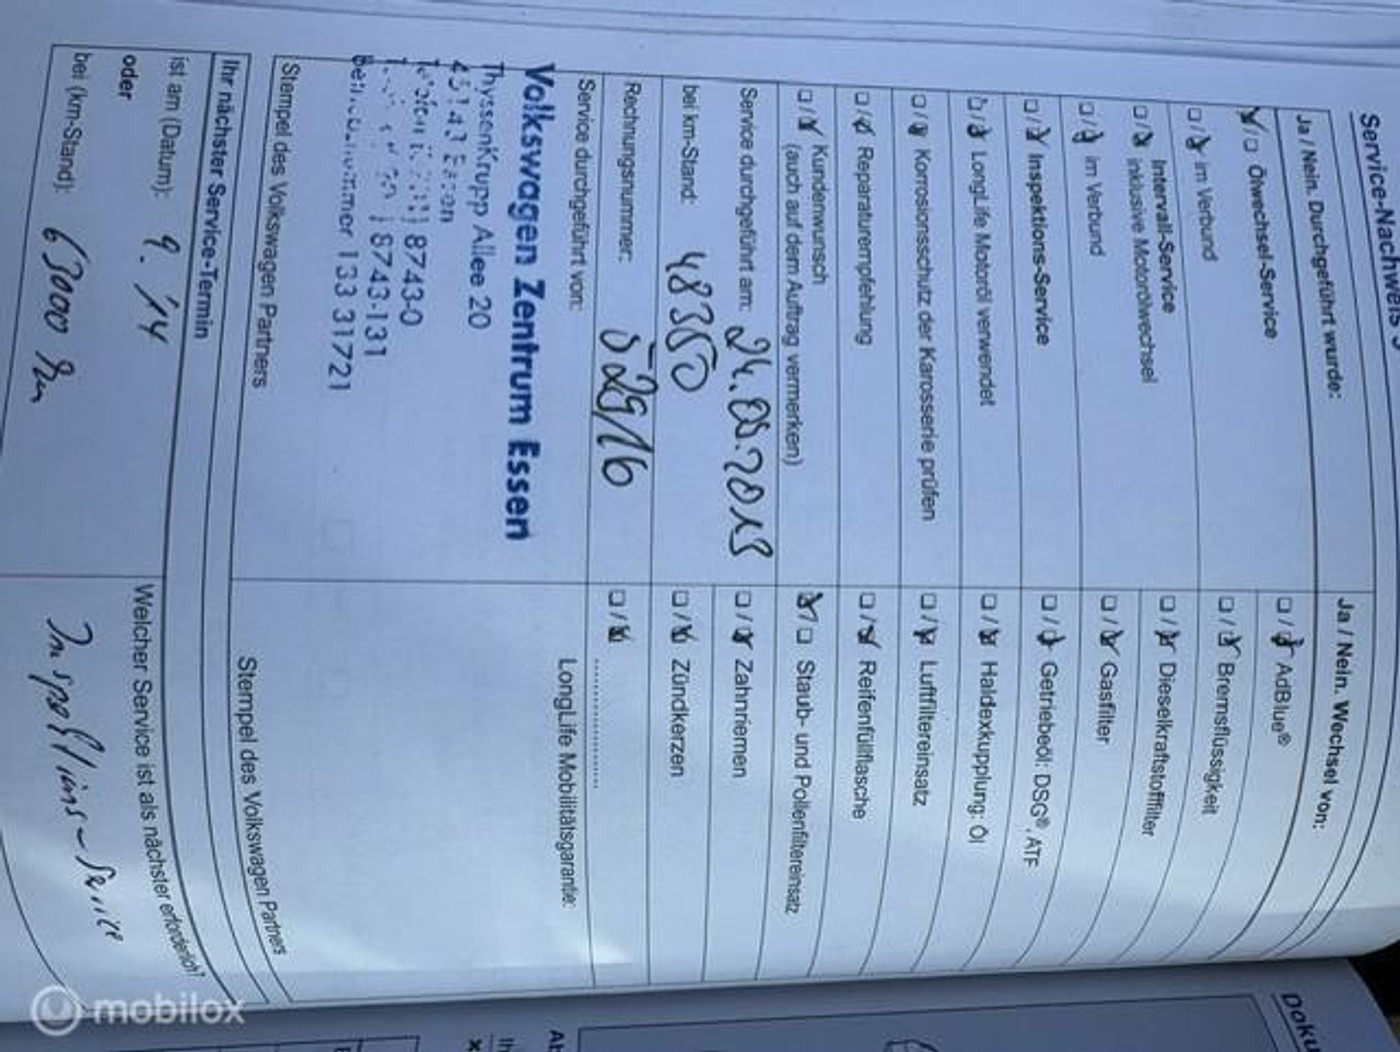 Service-Nachweis
Ja / Nein. Durchgeführt wurde:
☑/☐ Ölwechsel-Service
☐/☑ im Verbund
☐/☑ Intervall-Service
inklusive Motorölwechsel
☐/☑ im Verbund
☐/☑ Inspektions-Service
☐/☑ LongLife Motoröl verwendet
☐/☑ Korrosionsschutz der Karosserie prüfen
☐/☑ Reparaturempfehlung
☐/☑ Kundenwunsch
(auch auf dem Auftrag vermerken)
Service durchgeführt am: 24.09.2013
bei km-Stand: 48350
Rechnungsnummer: 52916
Service durchgeführt von:
Volkswagen Zentrum Essen
ThyssenKrupp Allee 20
45143 Essen
8743-0
8743-131
133 31721
Stempel des Volkswagen Partners
Ja / Nein. Wechsel von:
☐/☑ AdBlue®
☐/☑ Bremsflüssigkeit
☐/☑ Dieselkraftstofffilter
☐/☑ Gasfilter
☐/☑ Getriebeöl: DSG®, ATF
☐/☑ Haldexkupplung: Öl
☐/☑ Luftfiltereinsatz
☐/☑ Reifenfüllflasche
☑/☐ Staub- und Pollenfiltereinsatz
☐/☑ Zahnriemen
☐/☑ Zündkerzen
☐/☑ ....................
LongLife Mobilitätsgarantie:
Stempel des Volkswagen Partners
Ihr nächster Service-Termin
ist am (Datum): 9. 14
oder
bei (km-Stand): 63000 km
Welcher Service ist als nächster erforderlich?
Inspektions-Service
mobilox